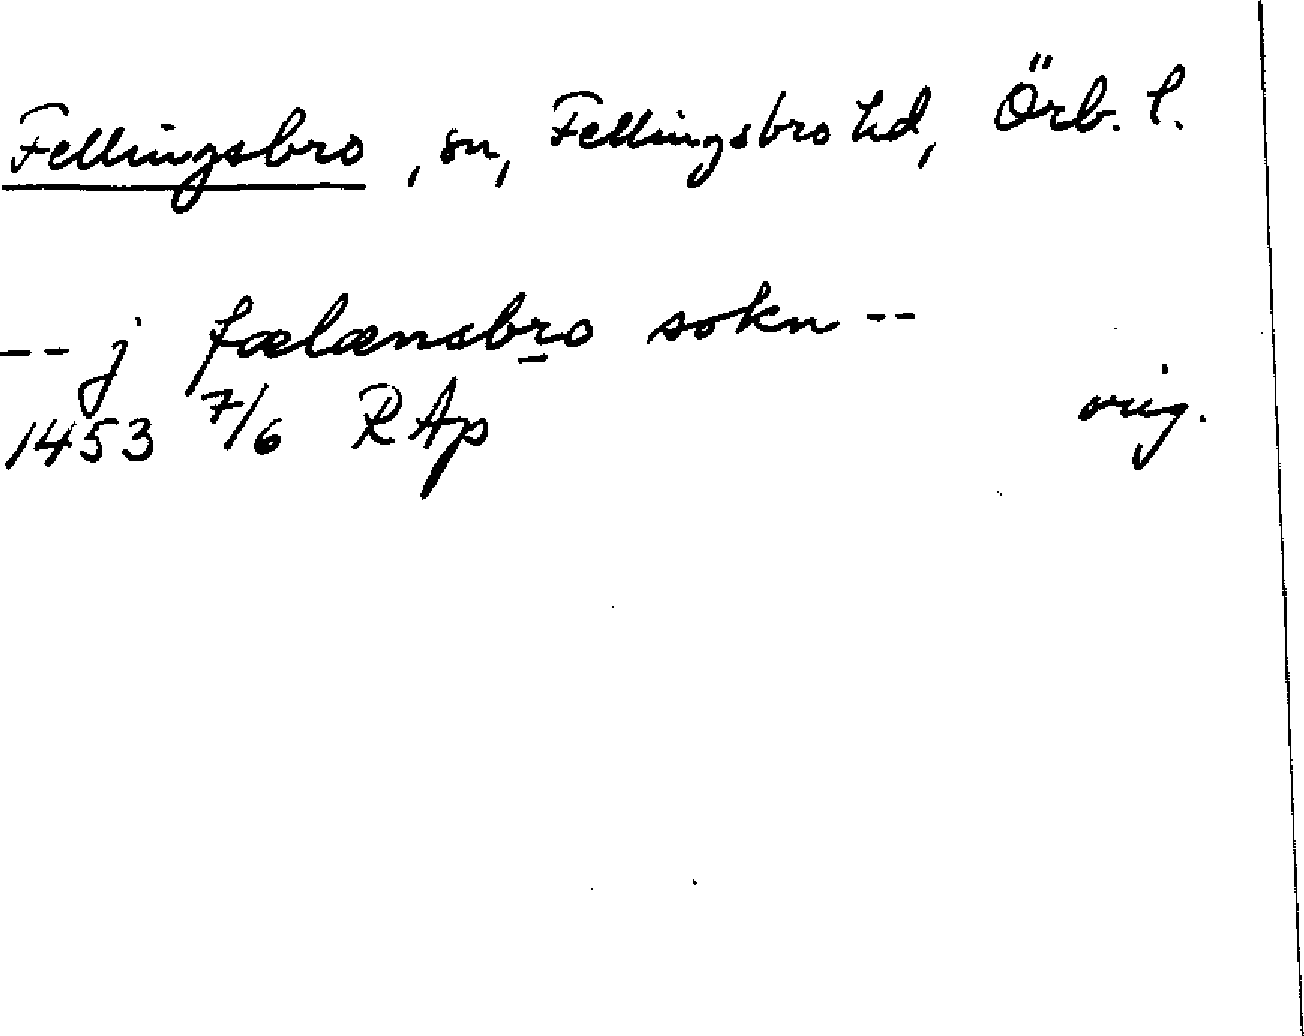 Fellingsbro, sn, Fellingsbro hd, Örb. l.
-- j fælænsbro sokn --
1453 7/6 RAp orig.